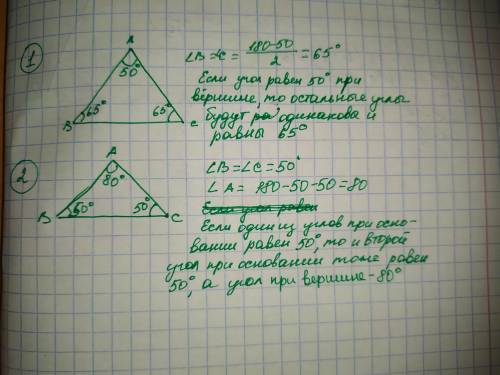 1
A
50°
B
65°
65°
C
∠B=∠C = 180-50 / 2 = 65°
Если угол равен 50° при
вершине, то остальные углы
будут ра одинакова и
равны 65°
2
A
80°
B
50°
50°
C
∠B=∠C=50°
∠A= 180-50-50=80
Если угол равен
Если один из углов при осно-
вании равен 50°, то и второй
угол при основании тоже равен
50°, а угол при вершине-80°